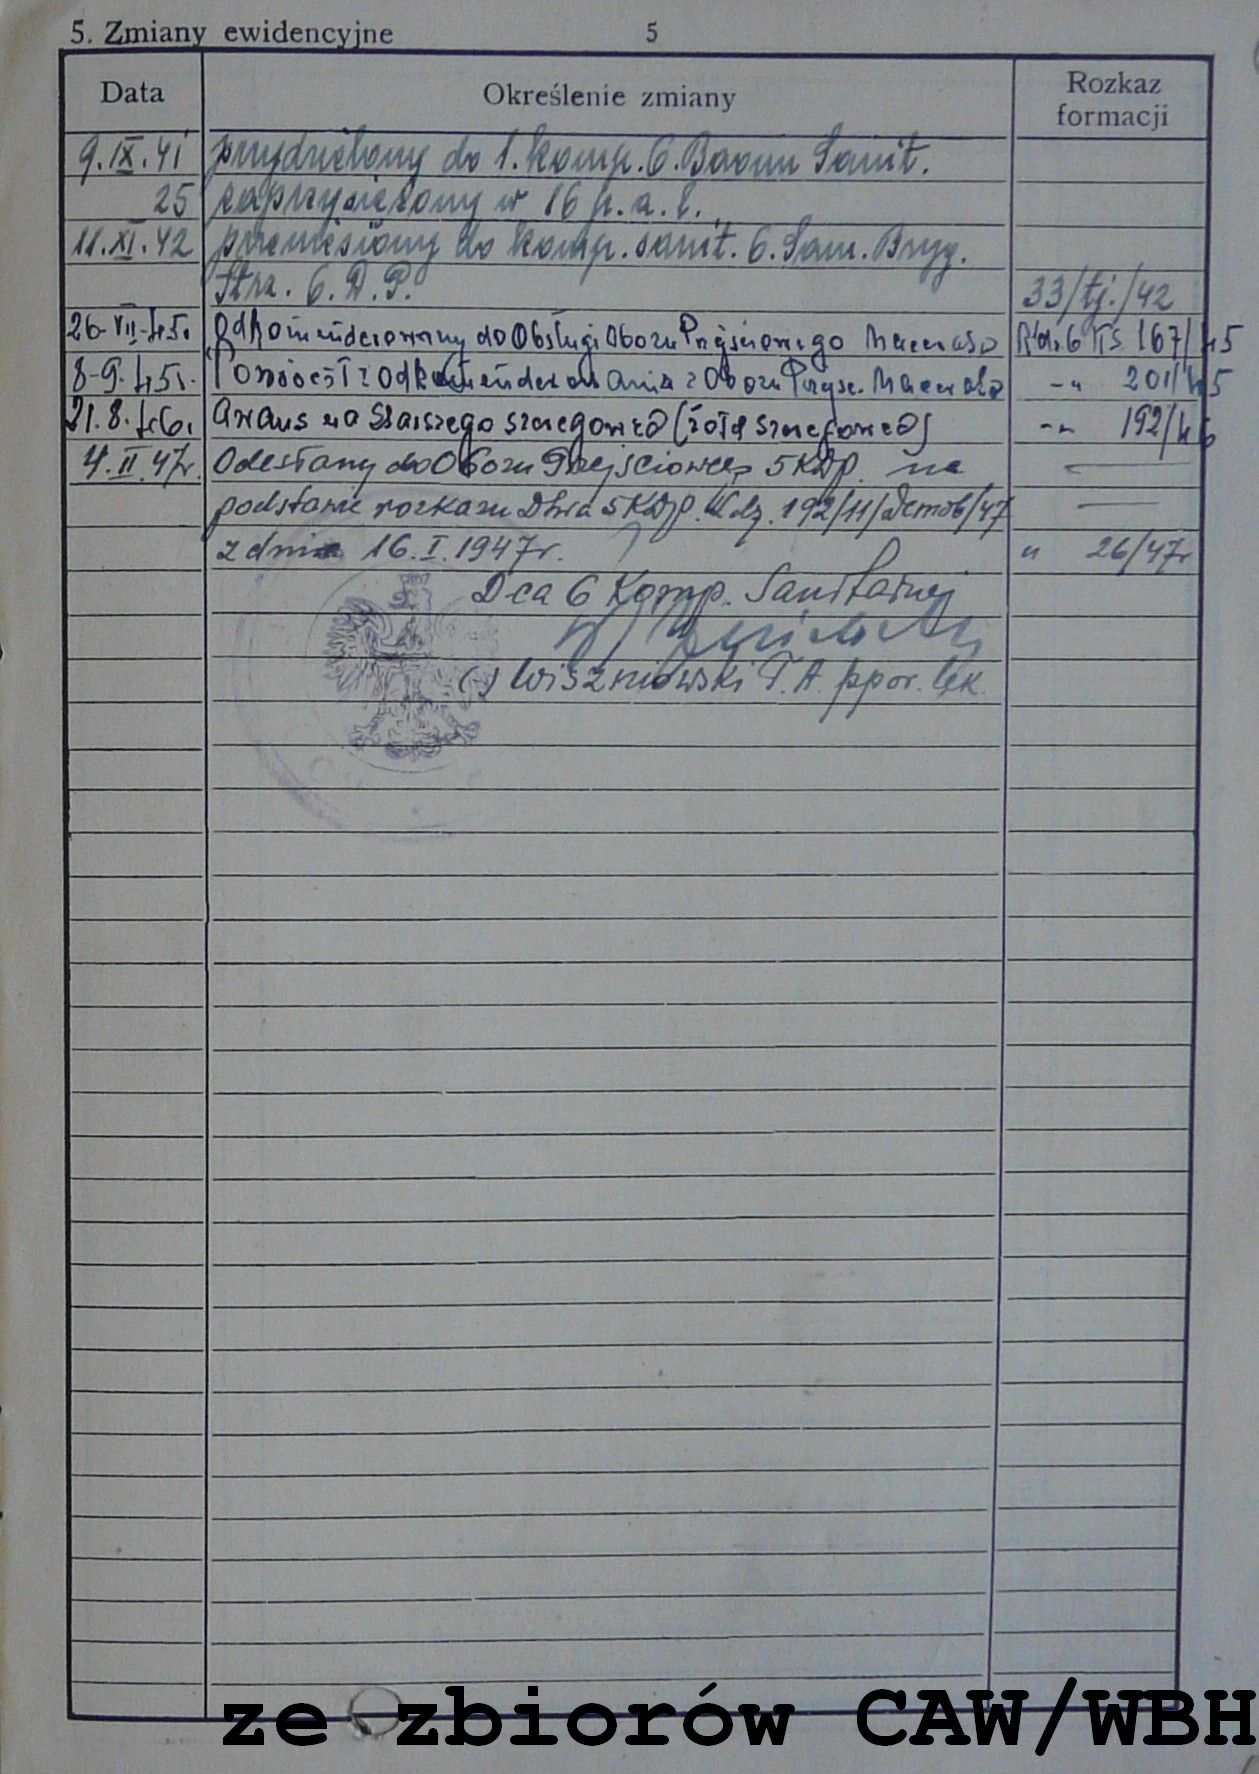 5. Zmiany ewidencyjne 5
Data Określenie zmiany Rozkaz formacji
9.IX.41 przydzielony do 1. komp. 6. Baonu Sanit.
25 zaprzysiężony w 16 p.a.l.
11.XI.42 przeniesiony do komp. sanit. 6. Sam. Bryg.
Strz. 6. D.P. 33/tj./42
26-VII-45. Odkomenderowany do Obsługi Obozu Przejściowego Macerata 167/45
8-9.45. Powrócił z odkomenderowania z Obozu Przejsc. Macerata -„- 201/45
21.8.46. Awans na Starszego szeregowca (żołd szeregowca) -„- 192/46
4.II.47r. Odesłany do Obozu Przejściowego 5 KDP. na —
podstawie rozkazu Dtwa 5 KDP. 192/11/Demob/47 —
z dnia 16.I.1947r. „ 26/47r
Dca 6 Komp. Sanitarnej
(-) Wiszniowski T.A. ppor. lek.
ze zbiorów CAW/WBH